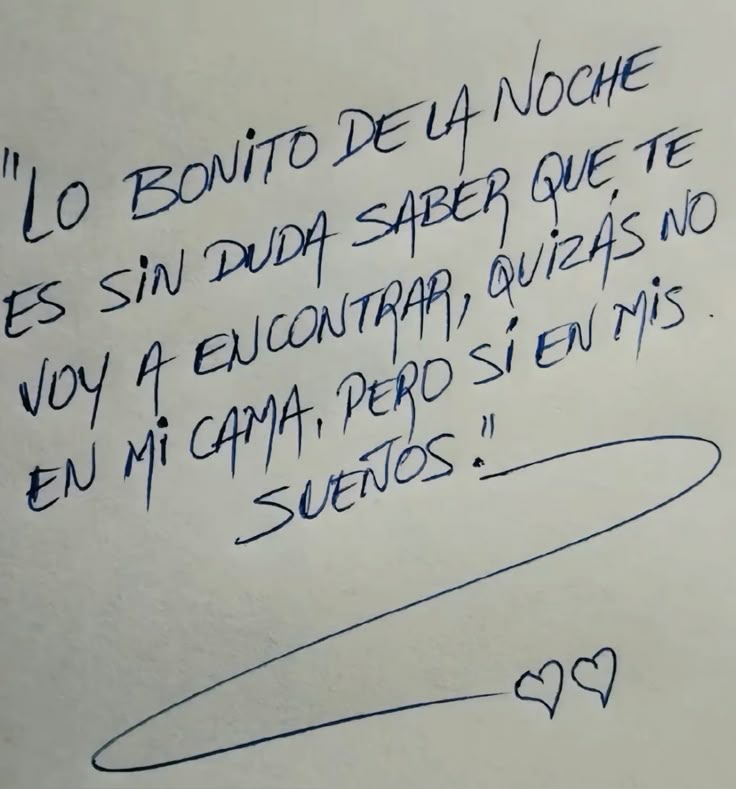 "LO BONITO DE LA NOCHE
ES SIN DUDA SABER QUE TE
VOY A ENCONTRAR, QUIZÁS NO
EN MI CAMA, PERO SÍ EN MIS
SUEÑOS."